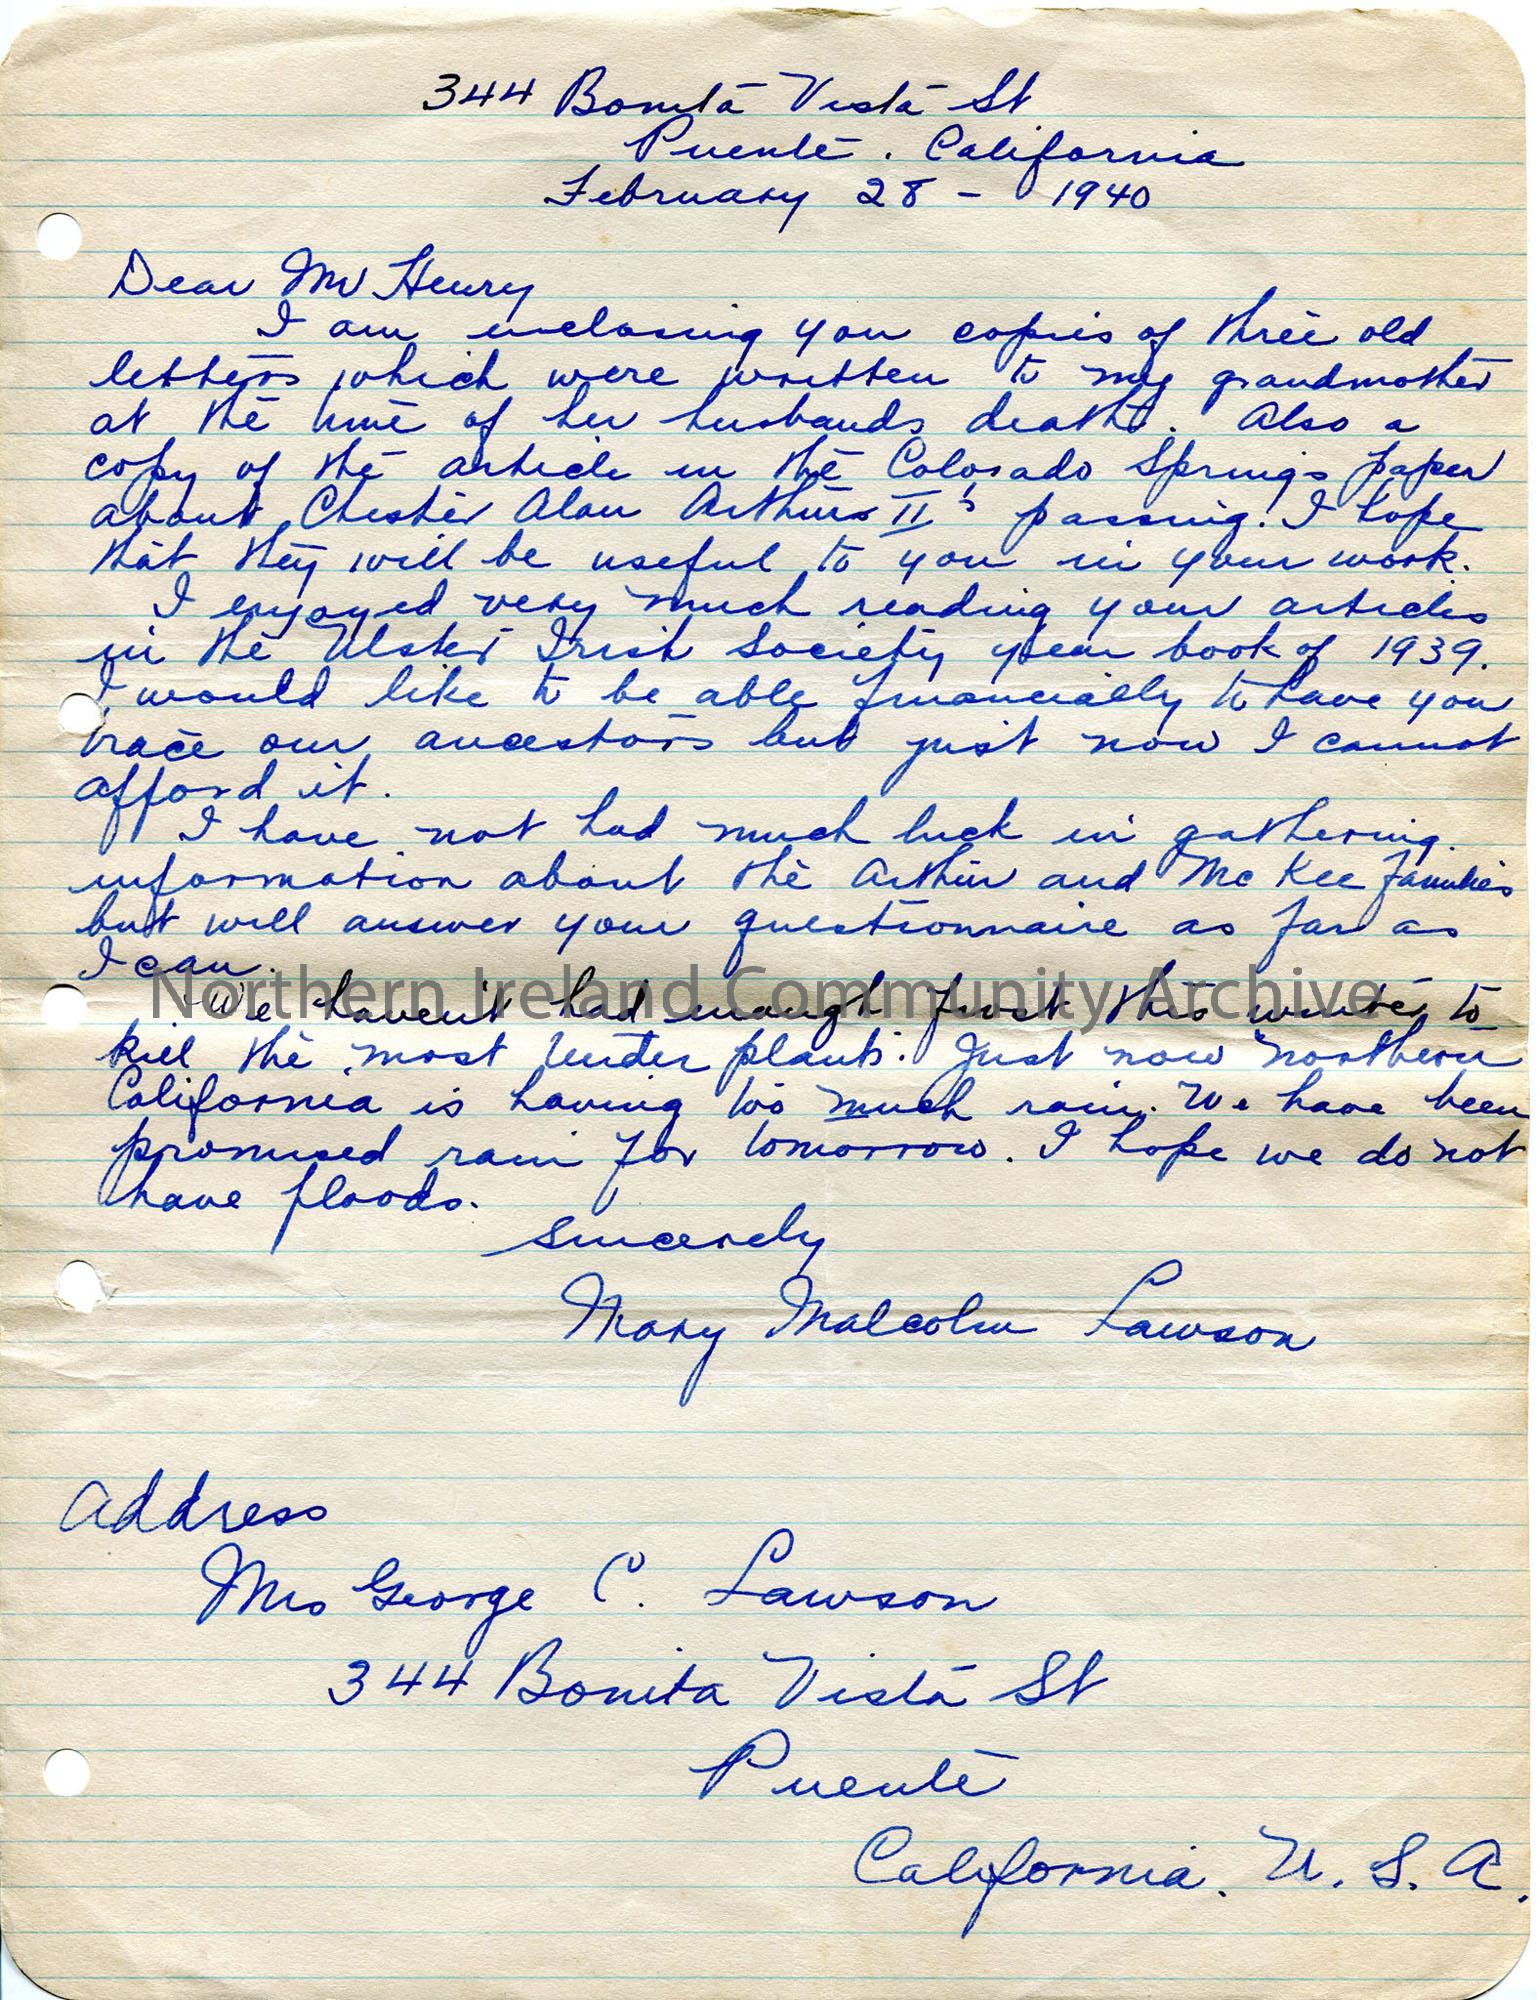 344 Bonita Vista St
Puente. California
February 28 - 1940
Dear Mr Henry
I am inclosing you copies of three old
letters which were written to my grandmother
at the time of her husbands death. Also a
copy of the article in the Colorado Springs paper
about Chester Alan Arthur II's passing. I hope
that they will be useful to you in your work.
I enjoyed very much reading your articles
in the Ulster Irish Society year book of 1939.
I would like to be able financially to have you
trace our ancestors but just now I cannot
afford it.
I have not had much luck in gathering
information about the Arthur and McKee families
but will answer your questionnaire as far as
I can.
We haven't had enough frost this winter to
kill the most tender plants. Just now northern
California is having too much rain. We have been
promised rain for tomorrow. I hope we do not
have floods.
Sincerely
Mary Malcolm Lawson
Address
Mrs George C. Lawson
344 Bonita Vista St
Puente
California. U.S.A.
Northern Ireland Community Archive